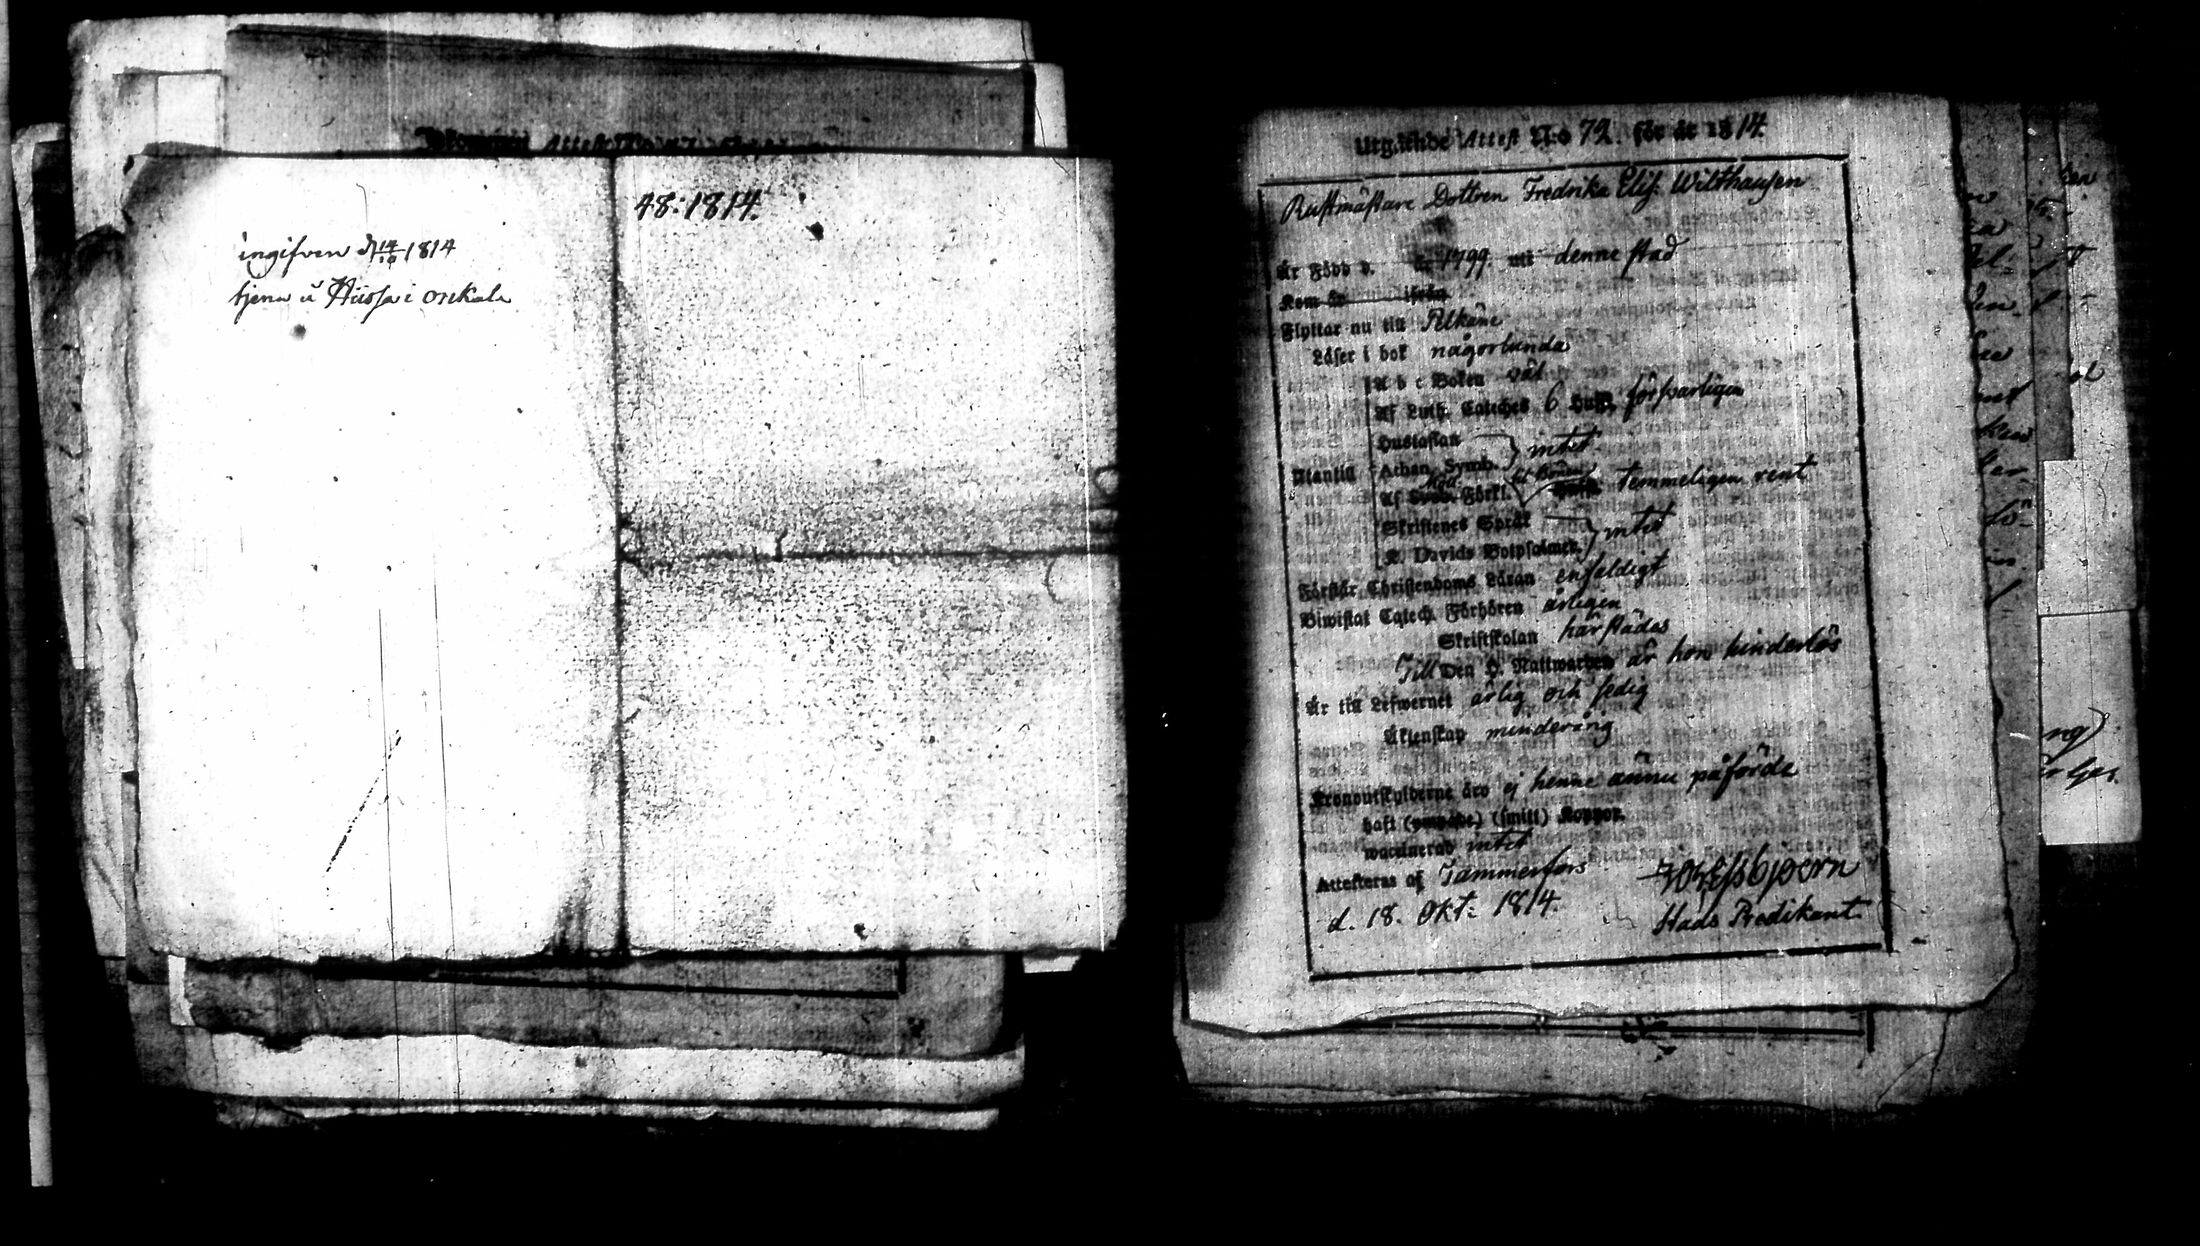 ingifven d 14/10 1814
tjena å i onkala
48: 1814.
Utgående Attest N:o 72. för år 1814.
Rustmästare Dottren Fredrika Elis. Wilthausen
Är Född d. år 1799 uti denne stad
Kom år ifrån
Flyttar nu till Pelkäne
Läser i bok någorlunda
A b c Boken väl
Af Luth. Cateches 6 Huf. försvarligen
Hustaflan
Athan. Symb. intet.
Utantill
Af Svebi. Förkl. temmeligen rent
Skriftenes Språk
K. Davids Botpsalmer. intet
Förstår Christendoms Läran enfaldigt
Biwistat Catech. Förhören årligen
Skriftskolan härstädes
Till Den H. Nattwarden är hon hinderlös
Är till Lefwernet ärlig och sedig
Äktenskap minderårig
Kronoutskylderne äro ej henne ännu påförde
haft (ympade) (smitt) Koppor.
waccinerad intet
Attesteras af Tammerfors
d. 18. Okt: 1814.
Stads Predikant.